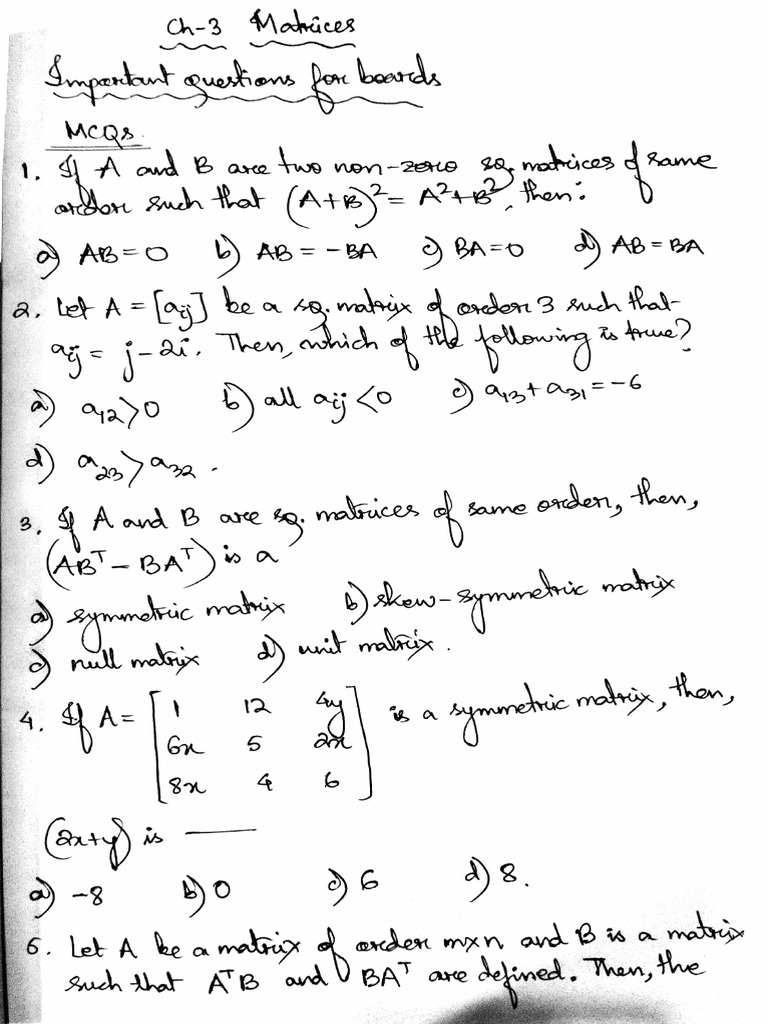 Ch-3 Matrices
Important questions for boards
MCQs.
1. If A and B are two non-zero sq. matrices of same
order such that (A+B)² = A²+B², then:
a) AB=0 b) AB = -BA c) BA=0 d) AB=BA
2. Let A = [aij] be a sq. matrix of order 3 such that
aij = j-2i. Then, which of the following is true?
a) a12>0 b) all aij <0 c) a13+a31=-6
d) a23>a32.
3. If A and B are sq. matrices of same order, then,
(ABᵀ - BAᵀ) is a
a) symmetric matrix b) skew-symmetric matrix
c) null matrix d) unit matrix.
4. If A = [1 12 4y is a symmetric matrix, then,
6x 5 2x
8x 4 6]
(2x+y) is ——
a) -8 b) 0 c) 6 d) 8.
5. Let A be a matrix of order m×n and B is a matrix
such that AᵀB and BAᵀ are defined. Then, the